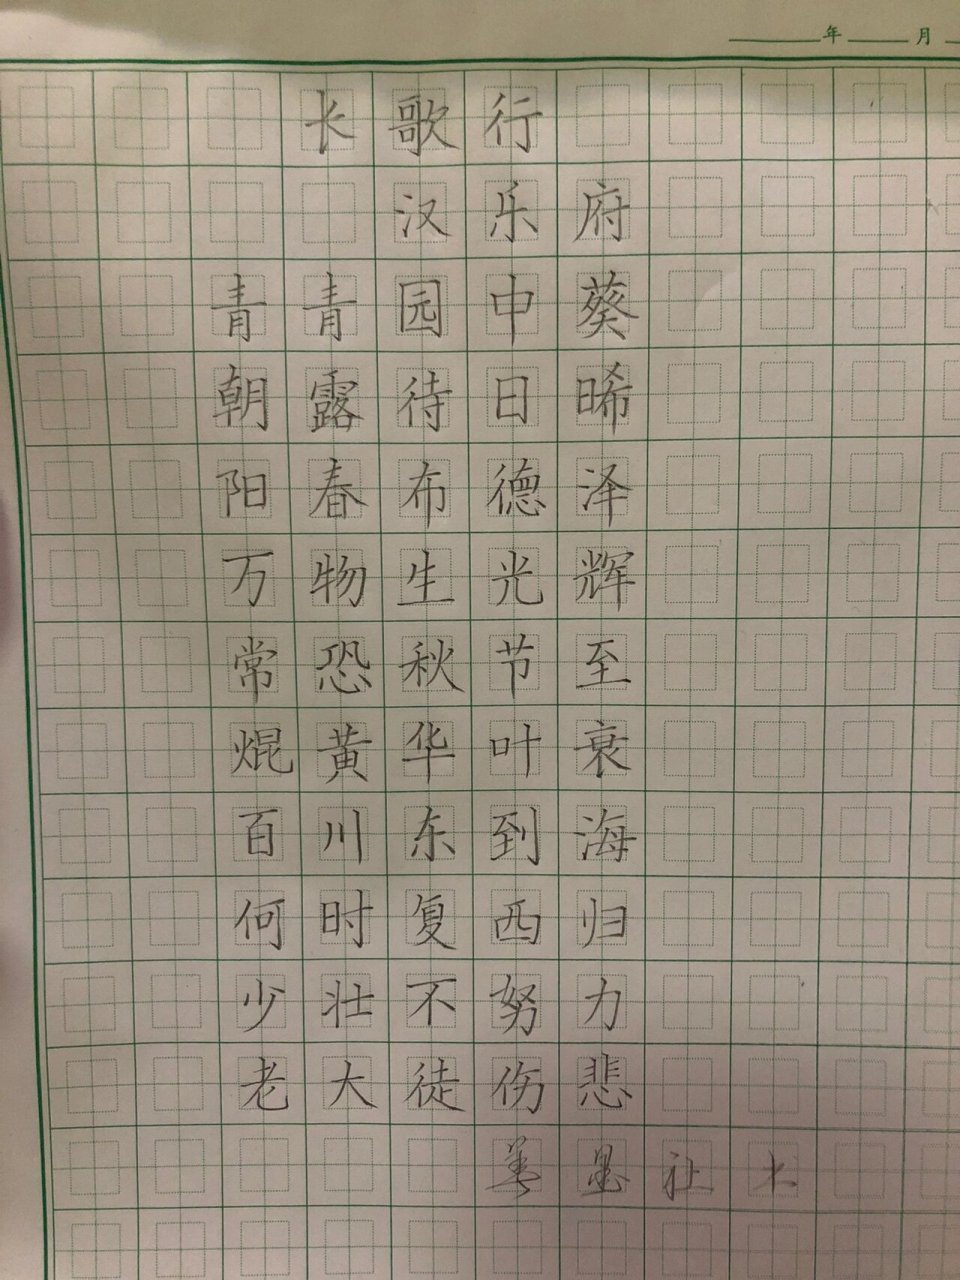 年 月
长歌行
汉乐府
青青园中葵
朝露待日晞
阳春布德泽
万物生光辉
常恐秋节至
焜黄华叶衰
百川东到海
何时复西归
少壮不努力
老大徒伤悲
墨